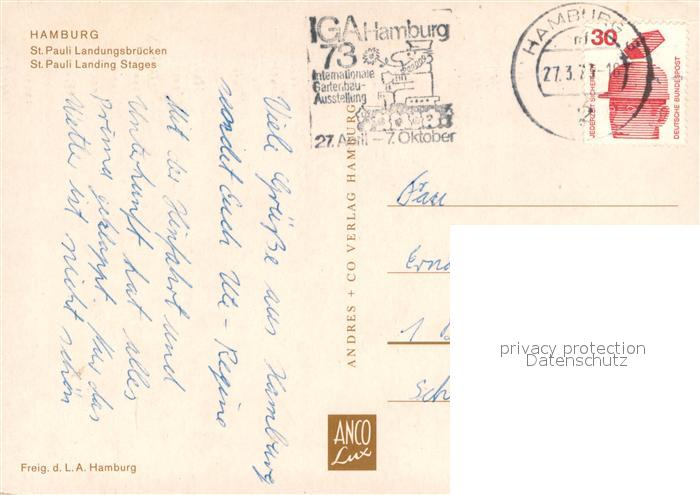 HAMBURG
St. Pauli Landungsbrücken
St. Pauli Landing Stages
IGA Hamburg
73
Internationale
Gartenbau-
Ausstellung
27. April – 7. Oktober
HAMBURG
27.3.73
30
JEDERZEIT SICHERHEIT
DEUTSCHE BUNDESPOST
Viele Grüße aus Hamburg
sendet Euch Ute-Regine
Mit der Hinfahrt und
Unterkunft hat alles
prima geklappt. Nur das
Wetter ist nicht schön
ANDRES + CO VERLAG HAMBURG
Fam
Ern
1
Sch
privacy protection
Datenschutz
ANCO
Lux
Freig. d. L. A. Hamburg